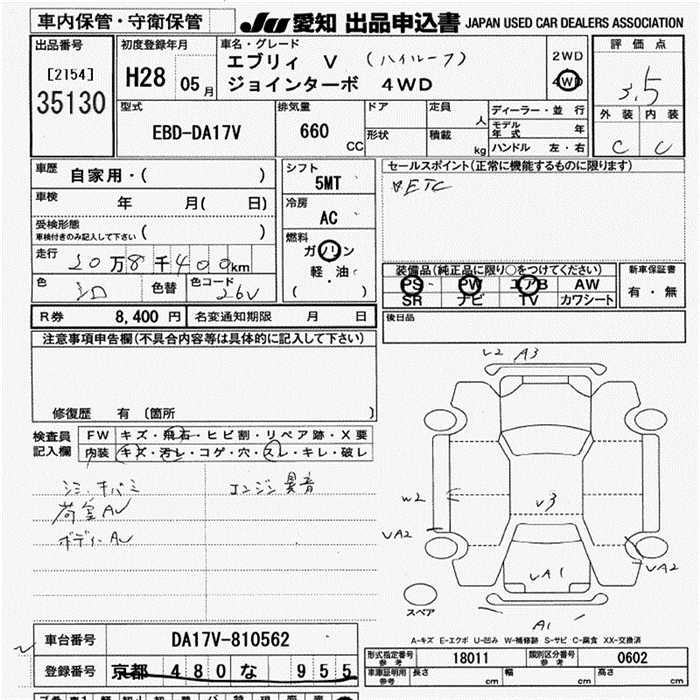 車内保管・守衛保管
JU 愛知 出品申込書 JAPAN USED CAR DEALERS ASSOCIATION
出品番号
[2154]
35130
初度登録年月
H28 05月
車名・グレード
エブリィ V (ハイルーフ)
ジョインターボ 4WD
2WD
4WD
評価点
3.5
外装 内装
C C
型式
EBD-DA17V
排気量
660 CC
ドア
形状
定員 人
積載 kg
ディーラー・並行
モデル年式 年
ハンドル 左・右
車歴
自家用・( )
車検 年 月( 日)
受検形態
車検付きのみ記入して下さい ( )
走行 20万8千400km
色 シロ 色替 色コード 26V
シフト
5MT
冷房
AC
燃料
ガソリン
軽・油
( )
セールスポイント(正常に機能するものに限ります)
ETC
装備品(純正品に限り○をつけてください)
PS PW エアB AW
SR ナビ TV カワシート
新車保証書
有・無
R券 8,400円 名変通知期限 月 日
後日品
注意事項申告欄(不具合内容等は具体的に記入して下さい)
修復歴 有 〔箇所 〕
検査員
記入欄
FW キズ・飛石・ヒビ割・リペア跡・X要
内装 キズ・汚レ・コゲ・穴・スレ・キレ・破レ
シミ・キバミ
荷室AU
ボディーAU
エンジン異音
U2 A3
W2
U3
UA2
UA2
UA1
A1
スペア
A-キズ E-エクボ U-凹み W-補修跡 S-サビ C-腐食 XX-交換済
車台番号 DA17V-810562
登録番号 京都 480 な 955
型式指定番号 参考 18011 類別区分番号 参考 0602
車庫証明用 参考 長さ cm 幅 cm 高さ cm